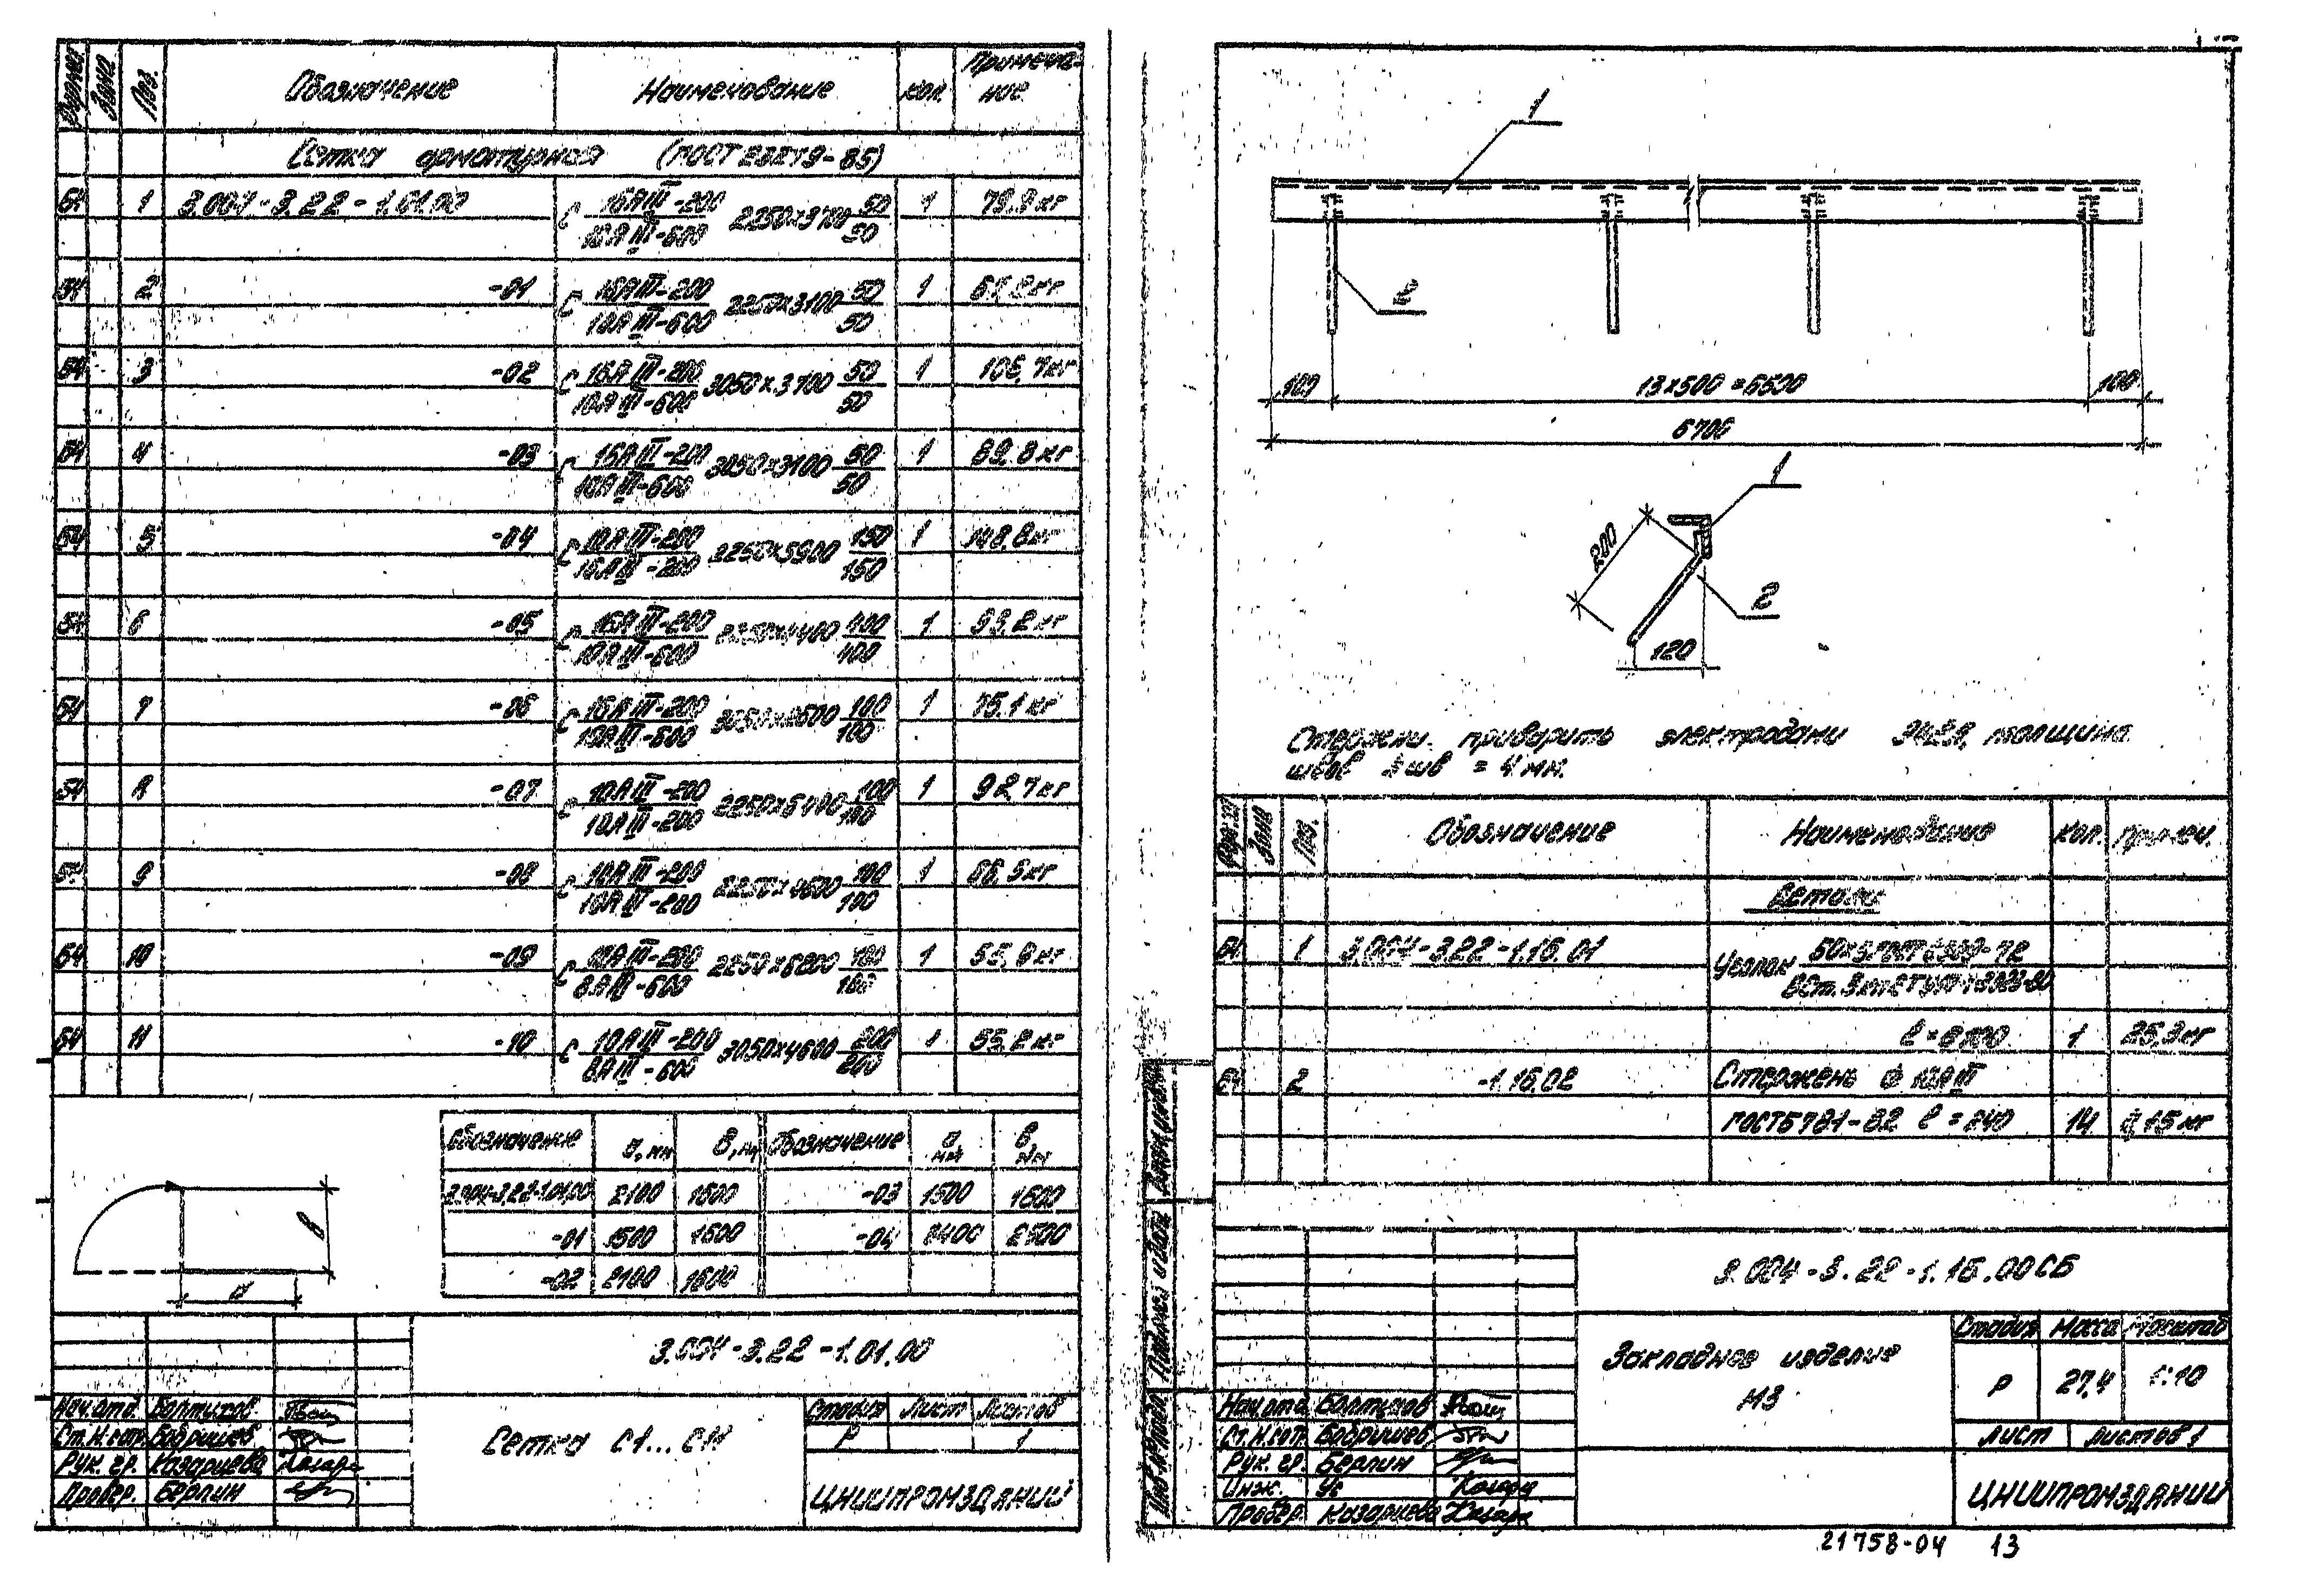 Формат Зона Поз. Обозначение Наименование Кол. Примеча-
ние
Сетка арматурная (ГОСТ 23279-85)
БЧ 1 3.004-3.22-1.01.00 С 16АIII-200/10АIII-600 2250×3700 50/50 1 79,9 кг
БЧ 2 -01 С 16АIII-200/10АIII-600 2250×3100 50/50 1
БЧ 3 -02 С 16АIII-200/10АIII-600 3050×3700 50/50 1
БЧ 4 -03 С 16АIII-200/10АIII-600 3050×3100 50/50 1 89,8 кг
БЧ 5 -04 С 10АIII-200/16АIII-200 2250×5900 150/150 1 148,8 кг
БЧ 6 -05 С 16АIII-200/10АIII-600 1 93,2 кг
БЧ 7 -06 С 16АIII-200/10АIII-600 100/100 1 75,1 кг
БЧ 8 -07 С 10АIII-200/10АIII-200 2250×6400 100/100 1 92,7 кг
БЧ 9 -08 С 10АIII-200/10АIII-200 2250×4600 100/100 1 66,5 кг
БЧ 10 -09 С 10АIII-200/8АIII-600 2250×6200 100/100 1
БЧ 11 -10 С 10АIII-200/8АIII-600 3050×4600 200/200 1 55,2 кг
Обозначение а, мм в, мм Обозначение а мм в мм
3.004-3.22-1.01.00 2100 1600 -03 1500 1600
-01 1500 1600 -04 3400 2500
-02 2100 1600
в
а
3.004-3.22-1.01.00
Нач. отд. Болтухов
Ст. н. сотр. Бобришев
Рук. гр. Казарцева
Провер. Берлин
Сетка С1...С11
Стадия Лист Листов
Р 1
ЦНИИПРОМЗДАНИЙ
1
2
100 13×500=6500 100
6700
1
200
2
120
Стержни приварить электродами Э42А, толщина
швов hшв = 4 мм.
Формат Зона Поз. Обозначение Наименование Кол. Примеч.
Детали
БЧ 1 3.004-3.22-1.16.01 Уголок 50×5 ГОСТ 8509-72
1 25,3 кг
БЧ 2 -1.16.02 Стержень Ф 10АIII
ГОСТ 5781-82 l = 240 14 0,15 кг
3.004-3.22-1.16.00СБ
Закладное изделие
М3
Стадия Масса Масштаб
Р 27,4 1:10
Лист Листов 1
ЦНИИПРОМЗДАНИЙ
Нач. отд. Болтухов
Ст. н. сот. Бобришев
Рук. гр. Берлин
Инж. Ус
Провер. Казарцева
Инв. № подл. Подпись и дата Взам. инв. №
21758-04 13